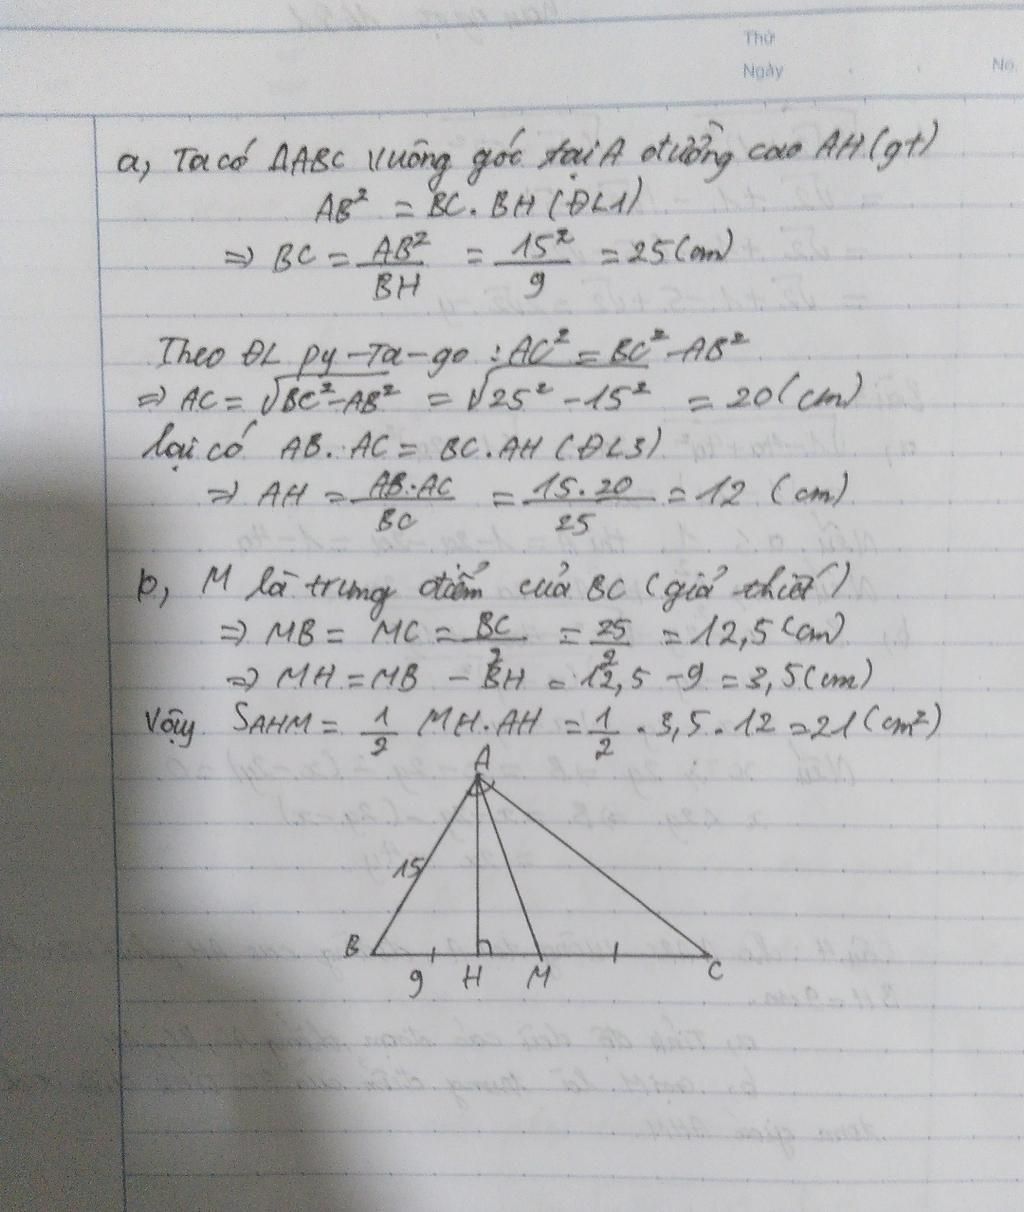 Thứ
Ngày
No.
a, Ta có ΔABC vuông góc tại A đường cao AH (gt)
AB² = BC. BH (ĐL1)
⇒ BC = AB²/BH = 15²/9 = 25 (cm)
Theo ĐL py-Ta-go : AC² = BC² - AB²
⇒ AC = √(BC² - AB²) = √(25² - 15²) = 20 (cm)
lại có AB. AC = BC. AH (ĐL3)
⇒ AH = AB.AC/BC = 15.20/25 = 12 (cm)
b, M là trung điểm của BC (giả thiết)
⇒ MB = MC = BC/2 = 25/2 = 12,5 (cm)
⇒ MH = MB - BH = 12,5 - 9 = 3,5 (cm)
Vậy SAHM = 1/2 MH. AH = 1/2 . 3,5 . 12 = 21 (cm²)
A
15
B
9 H M C